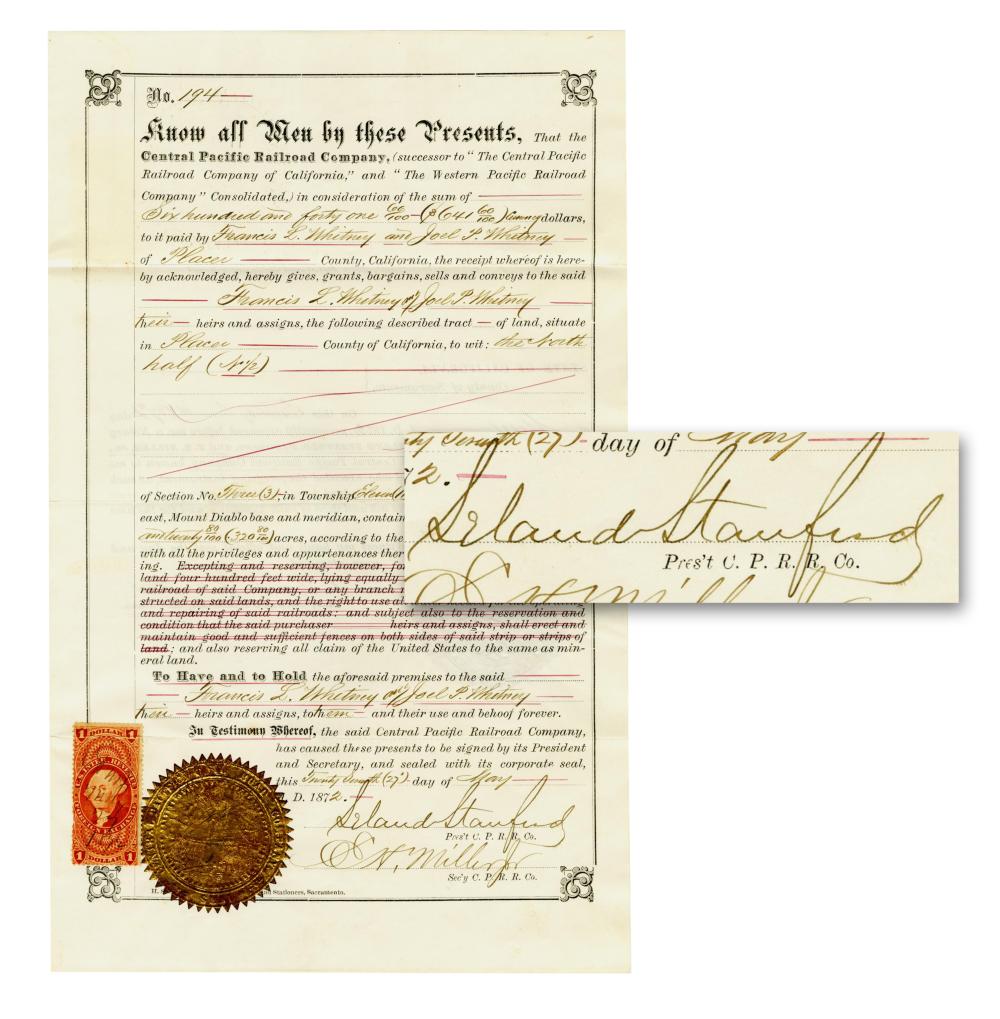 No. 194
Know all Men by these Presents, That the
Central Pacific Railroad Company, (successor to "The Central Pacific
Railroad Company of California," and "The Western Pacific Railroad
Company" Consolidated,) in consideration of the sum of
Six hundred and forty one 60/100 ($641 60/100) dollars,
to it paid by Francis L. Whitney and Joel P. Whitney
of Placer County, California, the receipt whereof is here-
by acknowledged, hereby gives, grants, bargains, sells and conveys to the said
Francis L. Whitney & Joel P. Whitney
their heirs and assigns, the following described tract of land, situate
in Placer County of California, to wit: the North
half (N 1/2)
of Section No. Three (3), in Township
east, Mount Diablo base and meridian, contain
and twenty 80/100 (320 80/100) acres, according to the
with all the privileges and appurtenances ther
ing. Excepting and reserving, however, fo
land four hundred feet wide, lying equally
railroad of said Company, or any branch
structed on said lands, and the right to use al
and repairing of said railroads; and subject also to the reservation and
condition that the said purchaser heirs and assigns, shall erect and
maintain good and sufficient fences on both sides of said strip or strips of
land; and also reserving all claim of the United States to the same as min-
eral land.
To Have and to Hold the aforesaid premises to the said
Francis L. Whitney & Joel P. Whitney
their heirs and assigns, to them and their use and behoof forever.
In Testimony Whereof, the said Central Pacific Railroad Company,
has caused these presents to be signed by its President
and Secretary, and sealed with its corporate seal,
this Twenty Seventh (27) day of May
. D. 1872.
Leland Stanford
Pres't C. P. R. R. Co.
E H. Miller Jr
Sec'y C. P. R. R. Co.
nd Stationers, Sacramento.
1 DOLLAR 1
U.S. INTER. REVENUE
FOREIGN EXCHANGE
1 DOLLAR 1
(27) day of May
2.
Leland Stanford
Pres't C. P. R. R. Co.